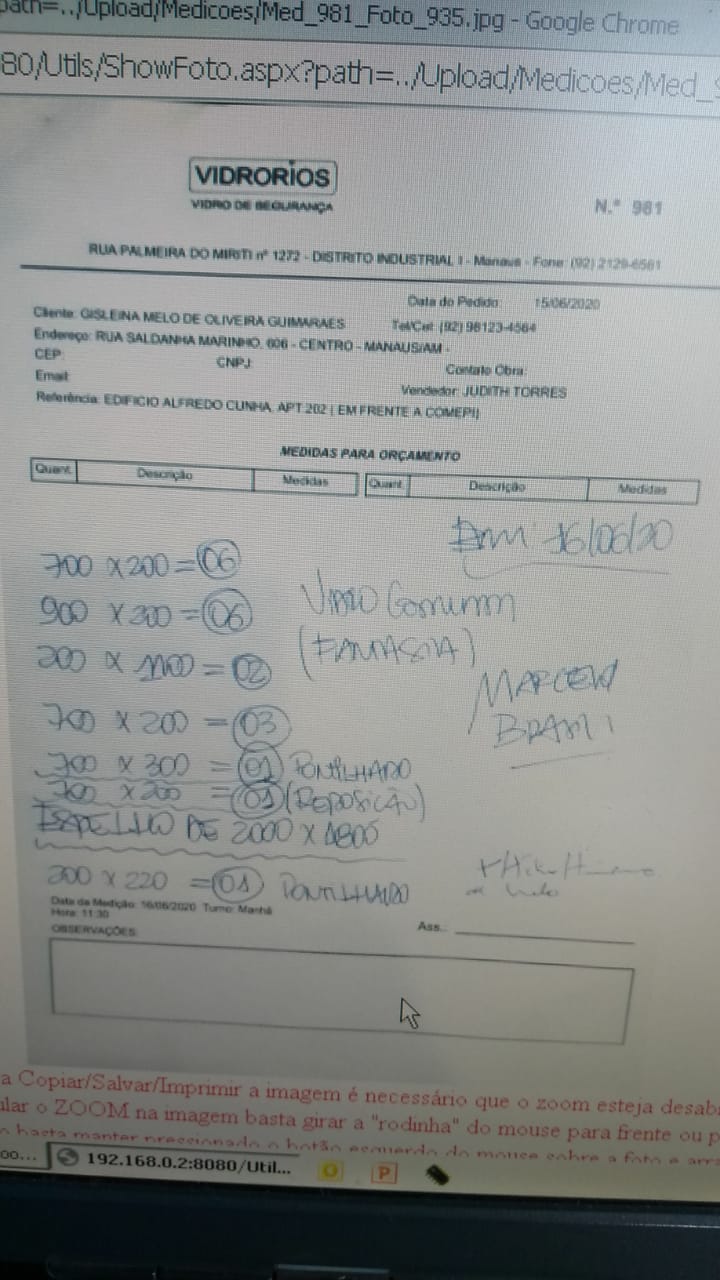 path=../Upload/Medicoes/Med_981_Foto_935.jpg - Google Chrome
80/Utils/ShowFoto.aspx?path=../Upload/Medicoes/Med_9
VIDRORIOS
VIDRO DE SEGURANÇA
N.º 981
RUA PALMEIRA DO MIRITI nº 1272 - DISTRITO INDUSTRIAL I - Manaus - Fone: (92) 2129-6561
Data do Pedido: 15/06/2020
Cliente: GISLEINA MELO DE OLIVEIRA GUIMARAES Tel/Cel: (92) 98123-4564
Endereço: RUA SALDANHA MARINHO, 606 - CENTRO - MANAUS/AM -
CEP: CNPJ: Contato Obra:
Email: Vendedor: JUDITH TORRES
Referência: EDIFICIO ALFREDO CUNHA, APT 202 ( EM FRENTE A COMEPI)
MEDIDAS PARA ORÇAMENTO
Quant. Descrição Medidas Quant. Descrição Medidas
Em 16/06/20
700 X 200 = 06
900 X 200 = 06
VIDRO Comum
(FANTASIA)
200 X 1100 = 02
MARCELO
BRAMI
700 X 200 = 03
700 X 300 = 01 PONTILHADO
700 X 200 = 01 (REPOSIÇÃO)
ESPELHO DE 2000 X 1800
200 X 220 = 01 PONTILHADO
Data da Medição: 16/06/2020 Turno: Manhã
Hora: 11:30
Ass.:
OBSERVAÇÕES:
a Copiar/Salvar/Imprimir a imagem é necessário que o zoom esteja desab
ular o ZOOM na imagem basta girar a "rodinha" do mouse para frente ou p
basta manter pressionado o botão esquerdo do mouse sobre a foto e arra
oo... 192.168.0.2:8080/Util...